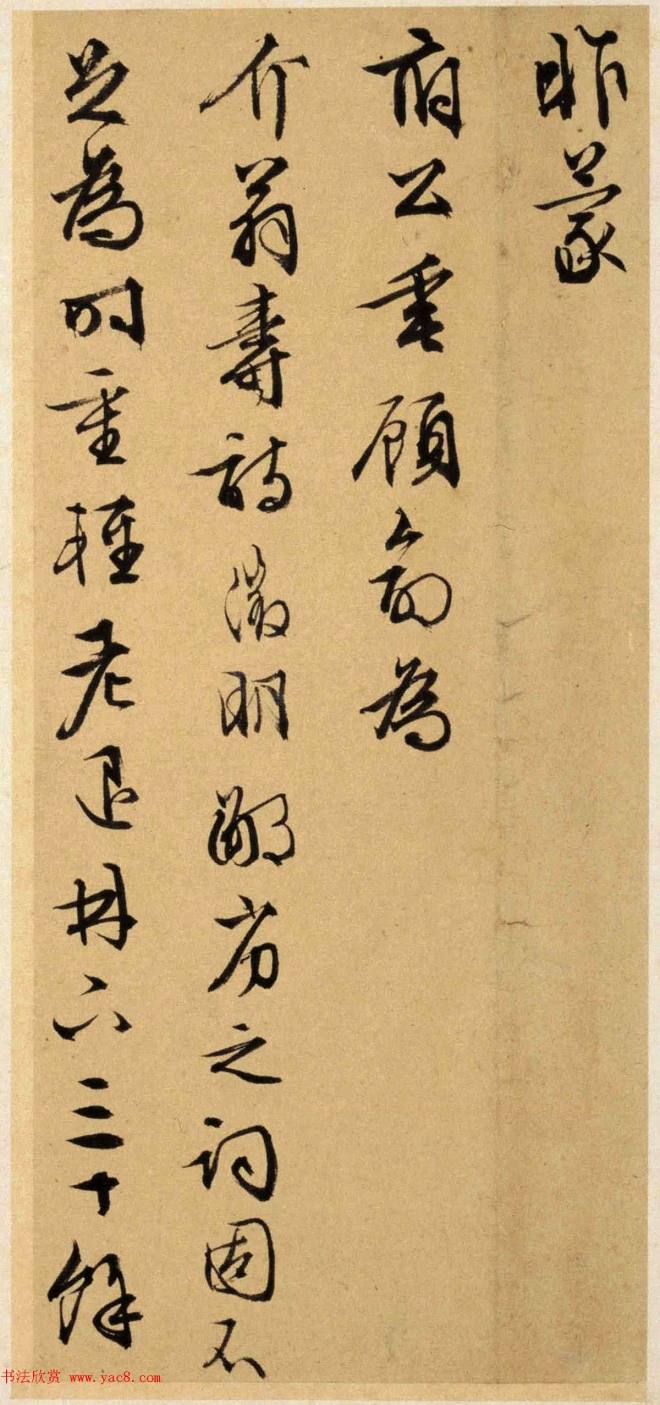 昨蒙
府公垂顧命為
介翁壽詩徵明鄙劣之詞固不
足為時重輕老退林下三十餘
书法欣赏 www.yac8.com